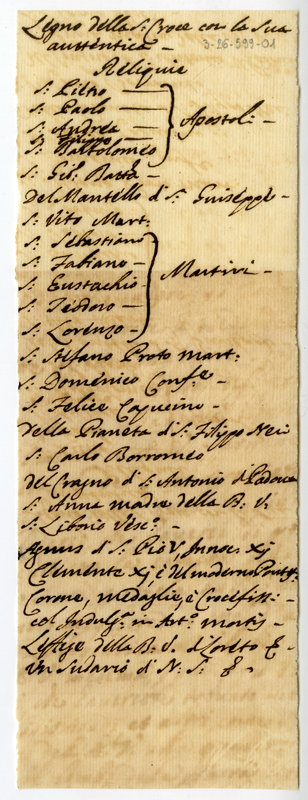 Legno della S: Croce con la Sua
auttentica -
3-26-599-01
Reliquie
S: Pietro —
S: Paolo —
S: Andrea —
S: Filippo —
S: Bartolomeo
Apostoli -
S: Gio: Batta -
Del Mantello di S: Guiseppe -
S: Vito Mart:
S: Sebastiano
S: Fabiano -
S: Eustachio -
S: Teodoro -
S: Lorenzo -
Martiri -
S: Stefano Proto mart:
S: Domenico Conf.e -
S: Felice Capucino -
della Pianeta di S: Filippo Neri
S: Carlo Borromeo
del Cragno di S: Antonio di Padova
S: Anna madre della B: V:
S: Liborio Vesc: -
Agnus di S: Pio V, Innoc: Xj
Clemente Xj, è del moderno Pontef:
Corone, medaglie, è Crocefissi -
col Indulg: in Art: mortis -
L'effige della B: V: di Loreto &. -
un Sudario di N: S: &. -